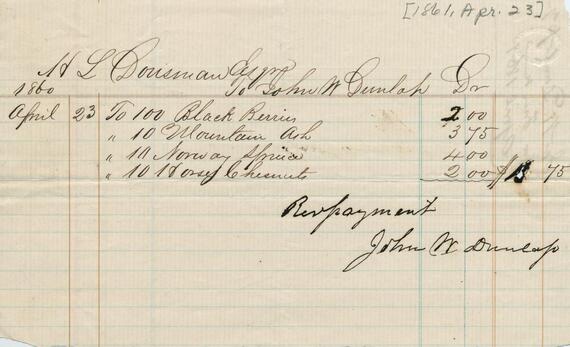 [1861, Apr. 23]
H L Dousman Esqr
1860 To John W Dunlap Dr
April 23 To 100 Black Berries 2 00
" 10 Mountain Ash 3 75
" 10 Norway Spruce 4 00
" 10 Horse Chesnuts 2 00 $ 75
Recvpayment
John W Dunlap